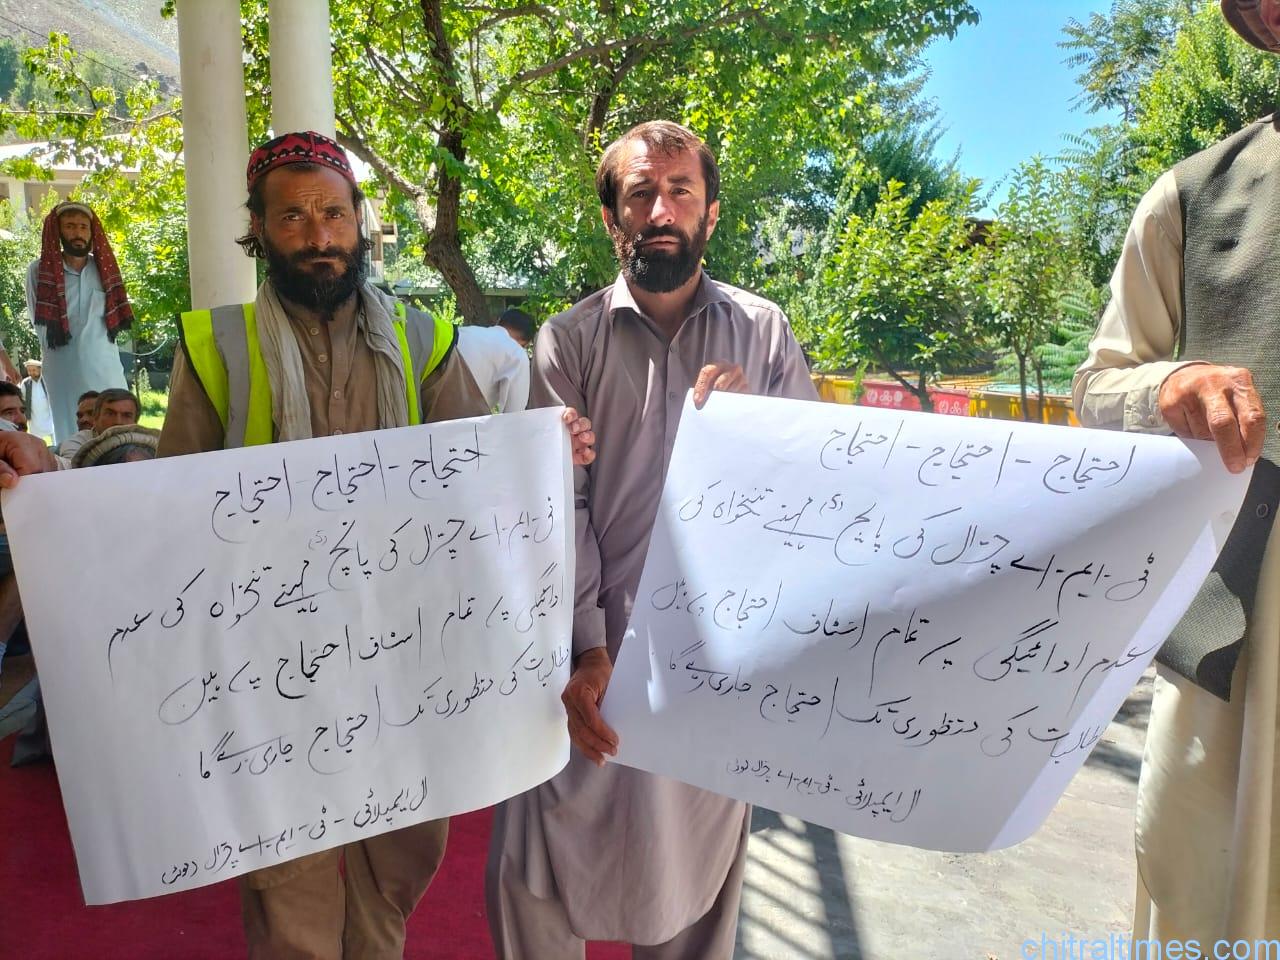 احتجاج - احتجاج - احتجاج
ٹی-ایم-اے چترال کی پانچ (5) مہینے تنخواہ کی عدم
ادائیگی پر تمام اسٹاف احتجاج پر ہیں
مطالبات کی منظوری تک احتجاج جاری رہے گا
ال ایمپلائی - ٹی-ایم-اے چترال (لوئر)
احتجاج - احتجاج - احتجاج
ٹی-ایم-اے چترال کی پانچ (5) مہینے تنخواہ کی
عدم ادائیگی پر تمام اسٹاف احتجاج پر ہیں
مطالبات کی منظوری تک احتجاج جاری رہے گا
ال ایمپلائی - ٹی-ایم-اے چترال لوئر
chitraltimes.com